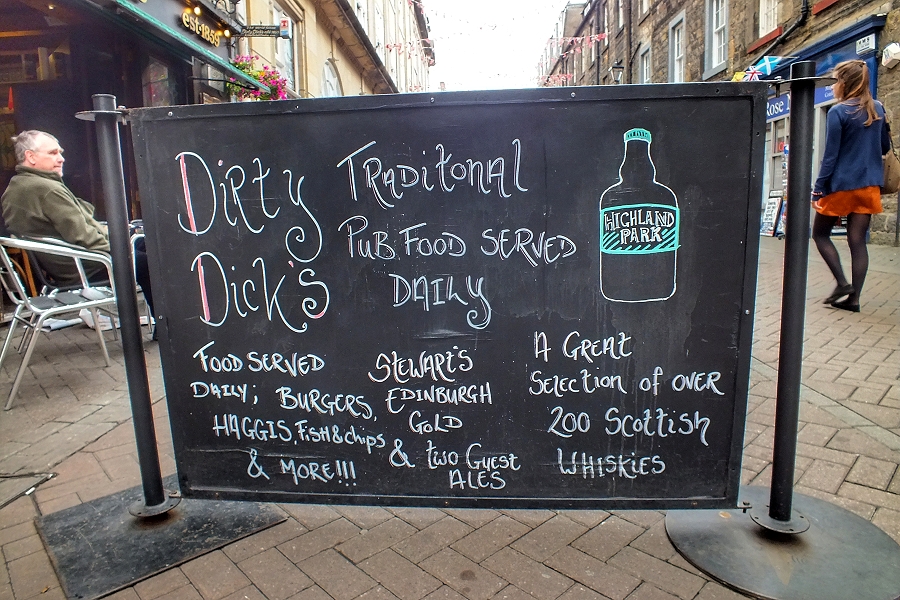 est·1859
Rose
Dirty
Dick's
Traditonal
Pub Food Served
Daily
HIGHLAND
PARK
Food Served
Daily; Burgers,
Haggis, Fish & chips
& More!!!
Stewart's
Edinburgh
Gold
& two Guest
Ales
A Great
Selection of over
200 Scottish
Whiskies